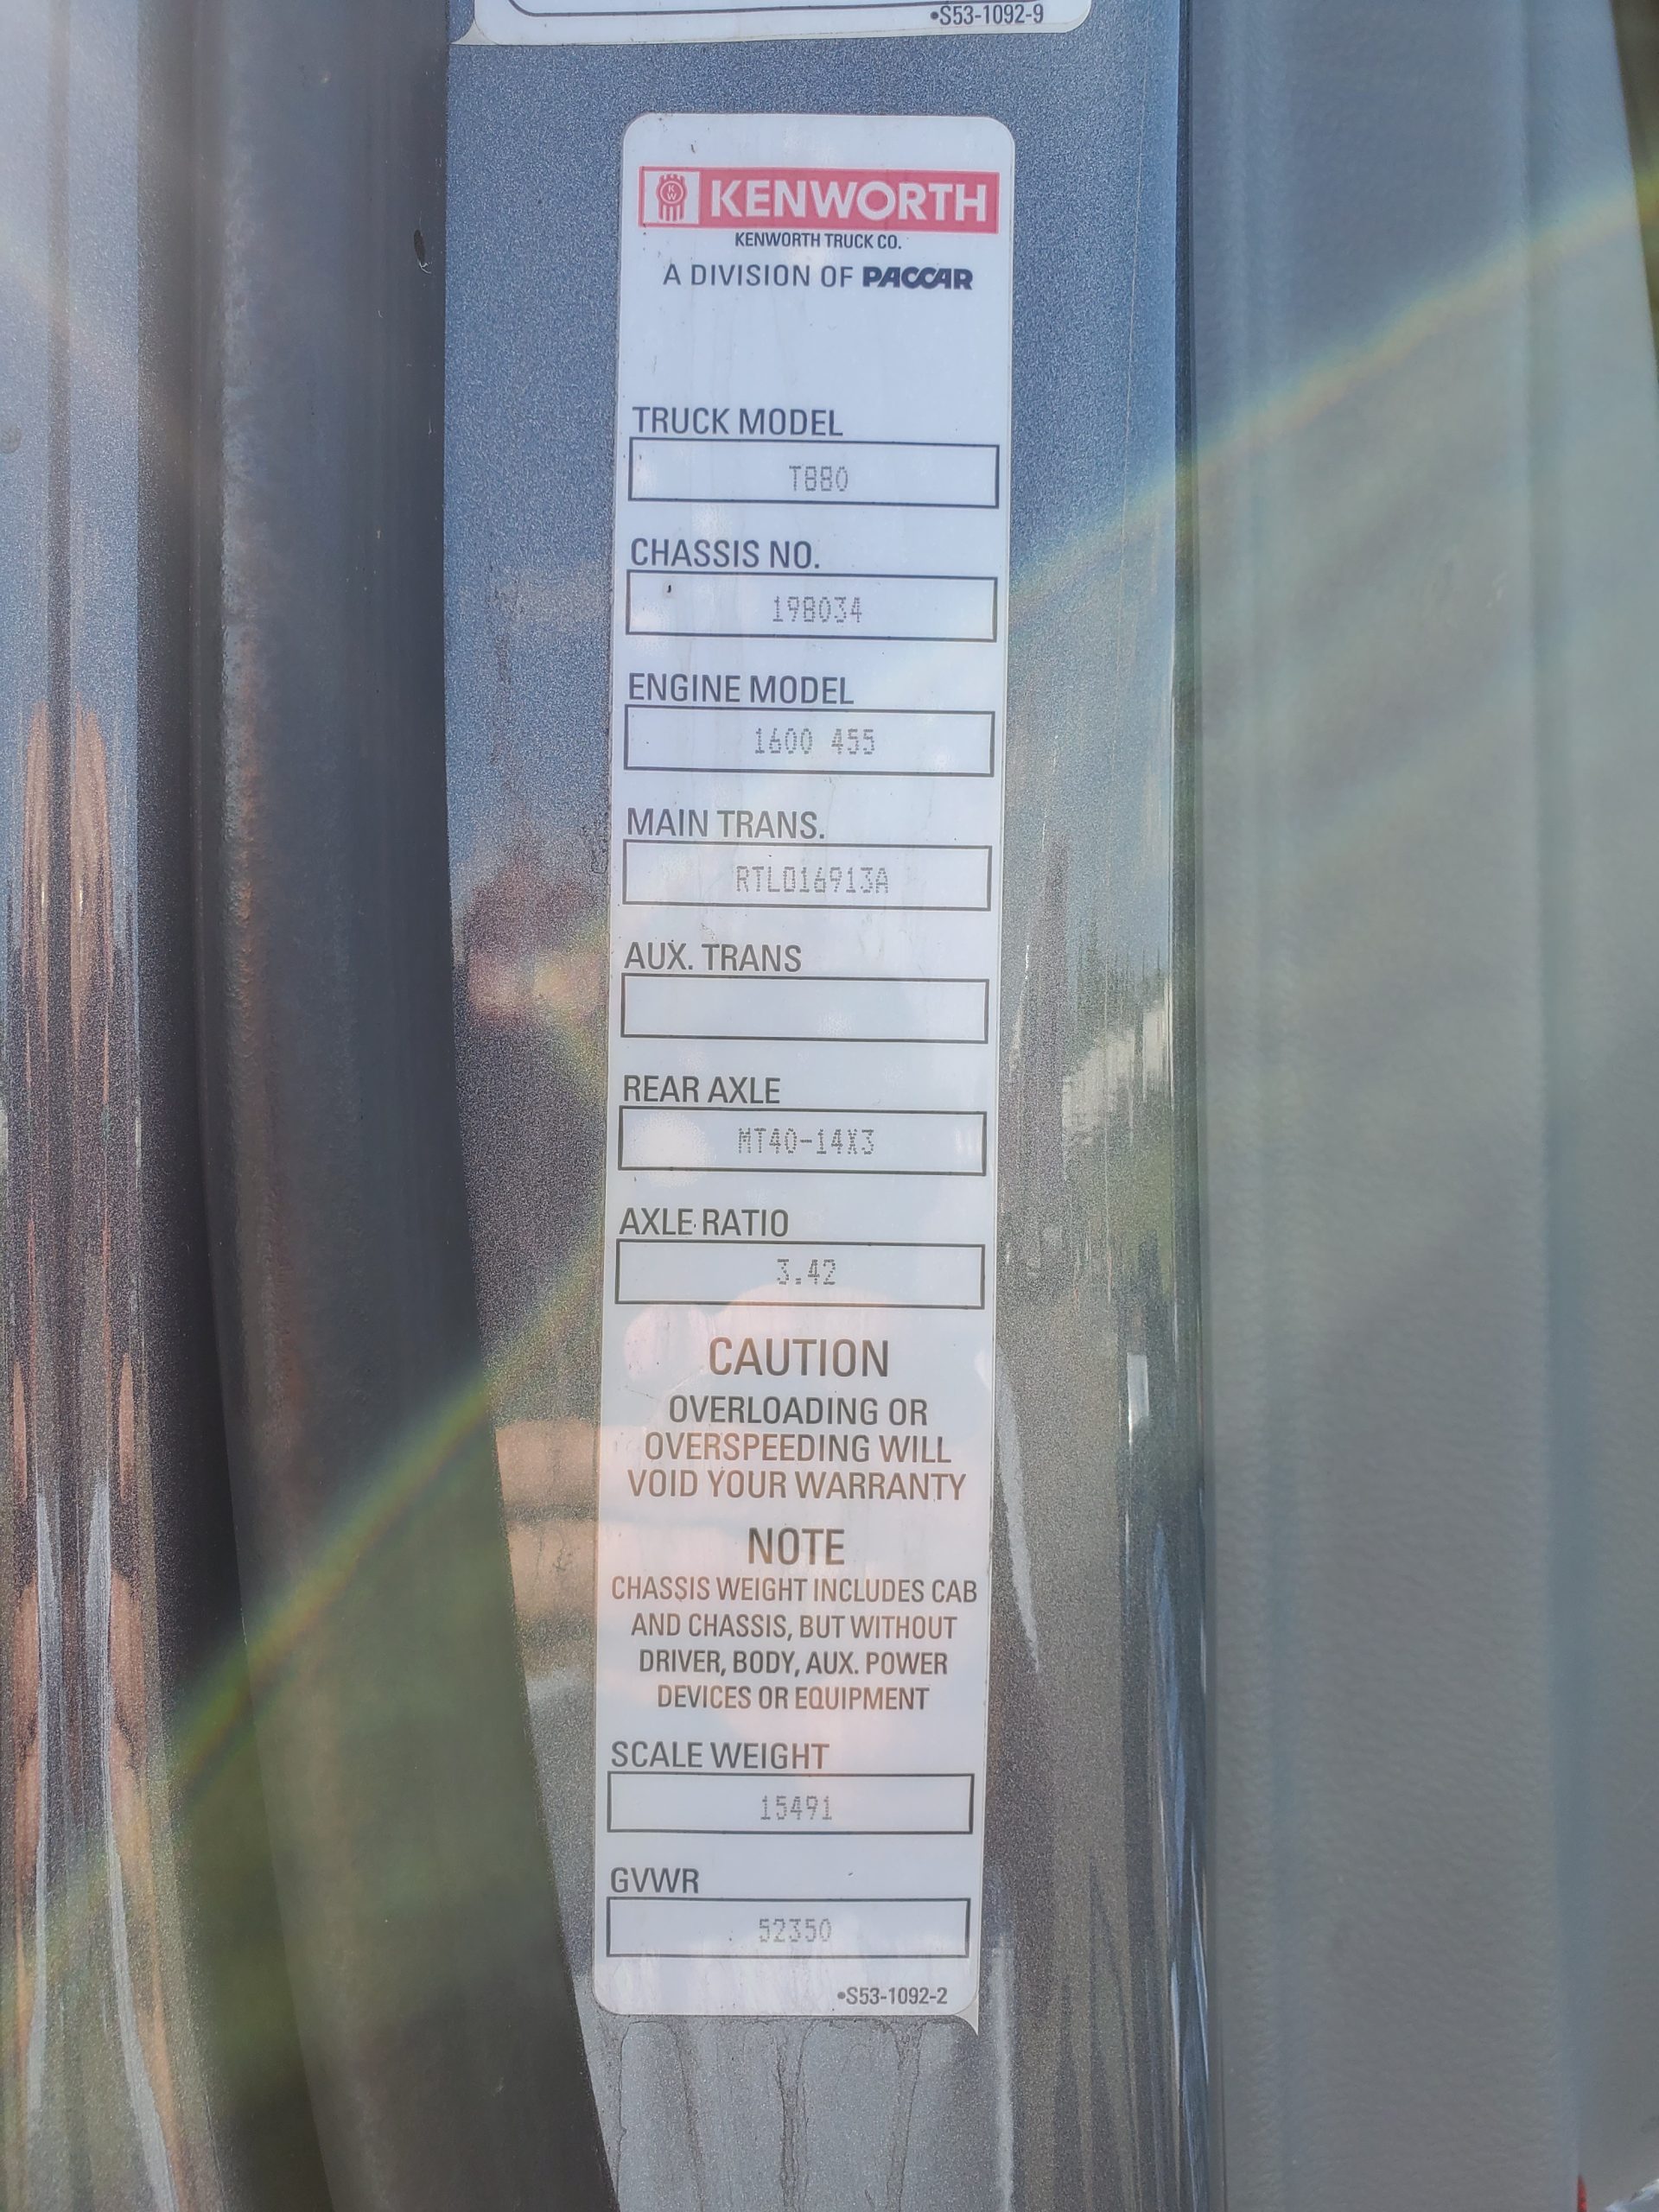 •S53-1092-9
KW KENWORTH
KENWORTH TRUCK CO.
A DIVISION OF PACCAR
TRUCK MODEL
T880
CHASSIS NO.
198034
ENGINE MODEL
1600 455
MAIN TRANS.
RTLO16913A
AUX. TRANS
REAR AXLE
MT40-14X3
AXLE RATIO
3.42
CAUTION
OVERLOADING OR
OVERSPEEDING WILL
VOID YOUR WARRANTY
NOTE
CHASSIS WEIGHT INCLUDES CAB
AND CHASSIS, BUT WITHOUT
DRIVER, BODY, AUX. POWER
DEVICES OR EQUIPMENT
SCALE WEIGHT
15491
GVWR
52350
•S53-1092-2